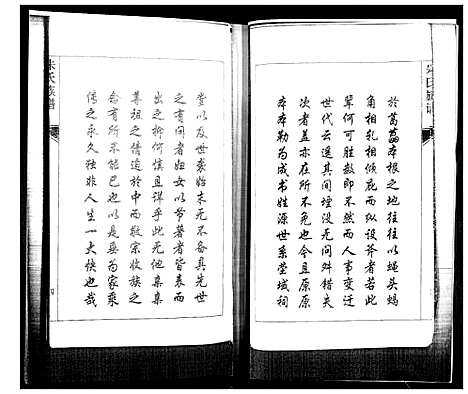 於葛藟本根之地往往以蝇头蝎
角相轧相倾庇而纵设斧者若此
辈何可胜数即不然而人事变迁
世代云遥其间堙没无问舛错失
次者盖亦在所不免也今且原原
本本勒为成书姓源世系茔域祠
堂以及世表始末无不备具先世
之有闻者妇女以节著者皆表而
出之抑何慎且详乎此无他亲亲
尊祖之情油然于中而敬宗收族之
念有所不能已也以是为家乘
传之永久独非人生一大快也哉
朱氏族谱